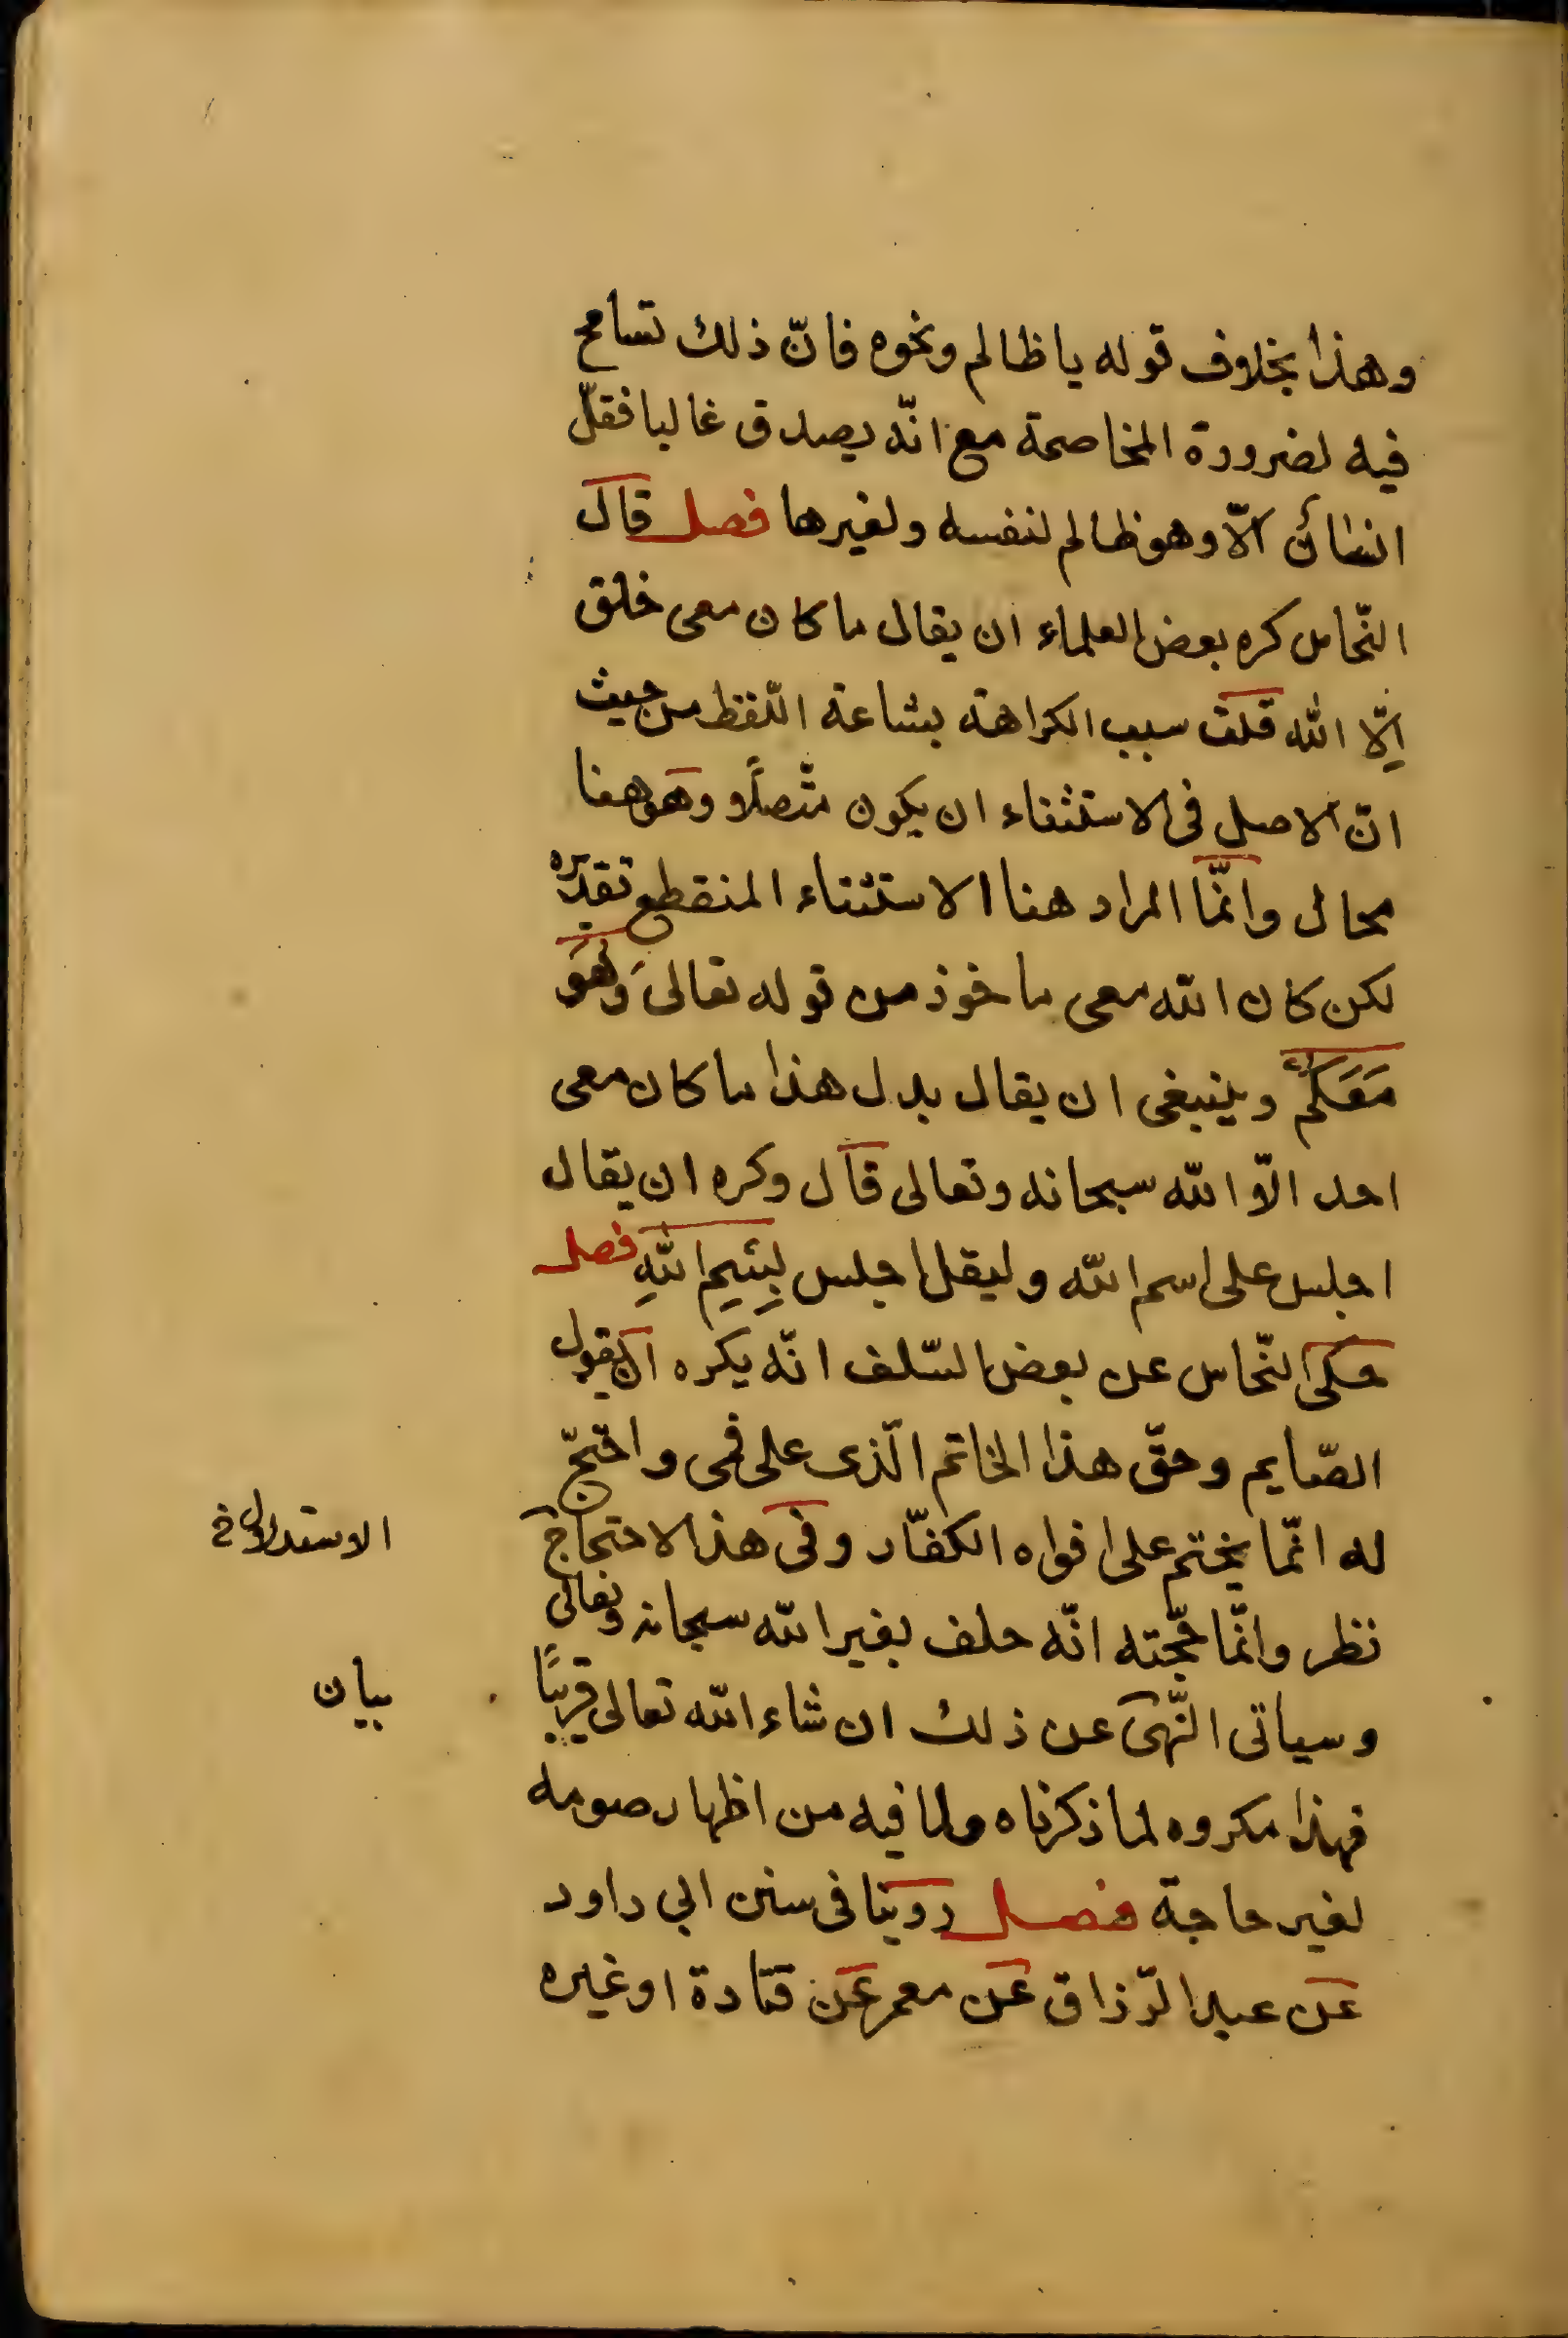 وهذا بخلاف قوله يا ظالم ونحوه فانّ ذلك تسامح
فيه لضرورة المخاصمة مع انّه يصدق غالبا فقلّ
انسان الاّ وهو ظالم لنفسه ولغيرها فصل قال
النّحاس كره بعض العلماء ان يقال ما كان معى خلق
إلّا الله قلت سبب الكراهة بشاعة اللّفظ من حيث
انّ الاصل فى الاستثناء ان يكون متّصلًا وهو هنا
محال وانّما المراد هنا الاستثناء المنقطع تقديره
لكن كان الله معى ماخوذ من قوله تعالى وَهُوَ
مَعَكُمْ وينبغى ان يقال بدل هذا ما كان معى
احد الاّ الله سبحانه وتعالى قال وكره ان يقال
اجلس على اسم الله وليقل اجلس بِسْمِ اللهِ فصل
حكى النّحاس عن بعض السّلف انّه يكره ان يقول
الصّايم وحقّ هذا الخاتم الّذى على فمى واحتجّ
له انّما يختم على افواه الكفّار وفى هذا الاحتجاج
الاستدلال خ
نظر وانّما حجّته انّه حلف بغير الله سبحانه وتعالى
وسياتى النّهى عن ذلك ان شاء الله تعالى قريبًا
بيان
فهذا مكروه لما ذكرناه ولما فيه من اظهار صومه
لغير حاجة فصل روينا فى سنن ابي داود
عن عبد الرّزاق عن معمر عن قتادة او غيره